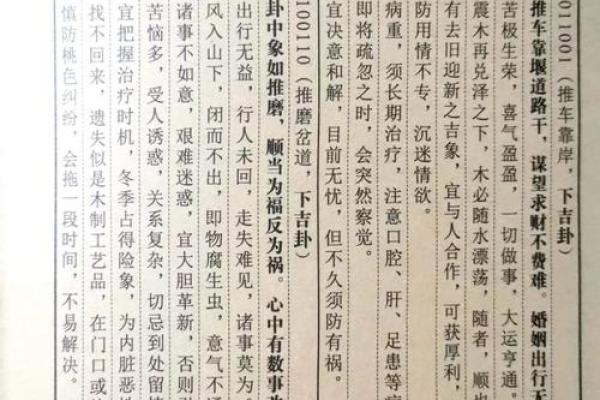 011001（推车靠岸，下吉卦）
推车靠堰道路干，谋望求财不费难。婚姻出行无
苦极生荣，喜气盈盈，一切做事，大运亨通。
震木再兑泽之下，木必随水漂荡，随者，顺也
有去旧迎新之吉象，宜与人合作，可获厚利，
防用情不专，沉迷情欲。
病重，须长期治疗，注意口腔、肝、足患等
即将疏忽之时，会突然察觉。
宜决意和解，目前无忧，但不久须防有祸。
100110（推磨岔道，下吉卦）
卦中象如推磨，顺当为福反为祸。心中有数事
出行无益，行人未回，走失难见，诸事莫为。
风入山下，闭而不出，即物腐生虫，意气不通
诸事不如意，艰难迷惑，宜大胆革新，否则
苦恼多，受人诱惑，关系复杂，切忌到处留
宜把握治疗时机，冬季占得险象，为内脏恶
找不回来，遗失似是木制工艺品，在门口或
慎防桃色纠纷，会拖一段时间，不易解决。